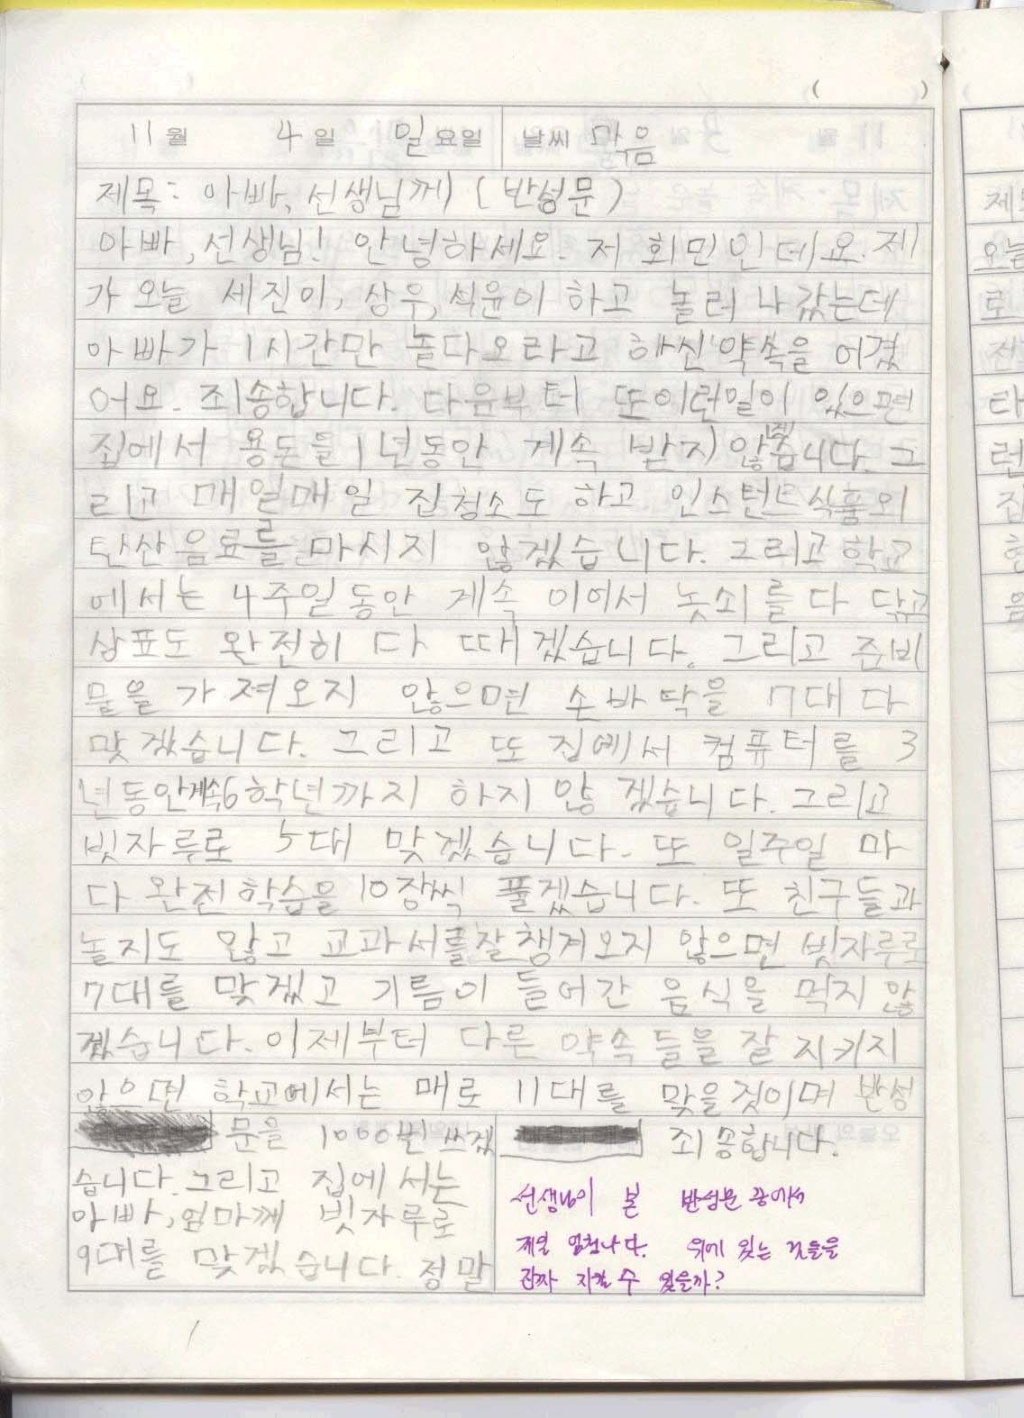 ( )
11월 4일 일요일 날씨 맑음
제목: 아빠, 선생님께 (반성문)
아빠, 선생님! 안녕하세요. 저 회민인데요. 제
가 오늘 세진이, 상우, 석윤이 하고 놀러 나갔는데
아빠가 1시간만 놀다오라고 하신 약속을 어겼
어요. 죄송합니다. 다음부터 또이런일이 있으면
집에서 용돈을 1년동안 계속 받지않겠습니다. 그
리고 매일매일 집청소도 하고 인스턴트식품외
탄산음료를 마시지 않겠습니다. 그리고 학교
에서는 4주일동안 계속 이어서 놋쇠를 다 닦고
상표도 완전히 다 떼겠습니다. 그리고 준비
물을 가져오지 않으면 손바닥을 7대 다
맞겠습니다. 그리고 또 집에서 컴퓨터를 3
년동안계속6학년까지 하지 않겠습니다. 그리고
빗자루로 5대 맞겠습니다. 또 일주일 마
다 완전학습을 10장씩 풀겠습니다. 또 친구들과
놀지도 않고 교과서를잘챙겨오지 않으면 빗자루로
7대를 맞겠고 기름이 들어간 음식을 먹지 않
겠습니다. 이제부터 다른 약속들을 잘 지키지
않으면 학교에서는 매로 11대를 맞을것이며 반성
문을 1000번 쓰겠
습니다. 그리고 집에서는
아빠, 엄마께 빗자루로
9대를 맞겠습니다. 정말
죄송합니다.
선생님이 본 반성문 중에서
제일 엄청나다. 위에 있는 것들을
진짜 지킬 수 있을까?